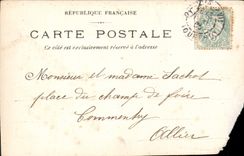 RÉPUBLIQUE FRANÇAISE
CARTE POSTALE
Ce côté est exclusivement réservé à l'adresse
Monsieur et madame Sachot
place du champ de foire
Commentry
Allier